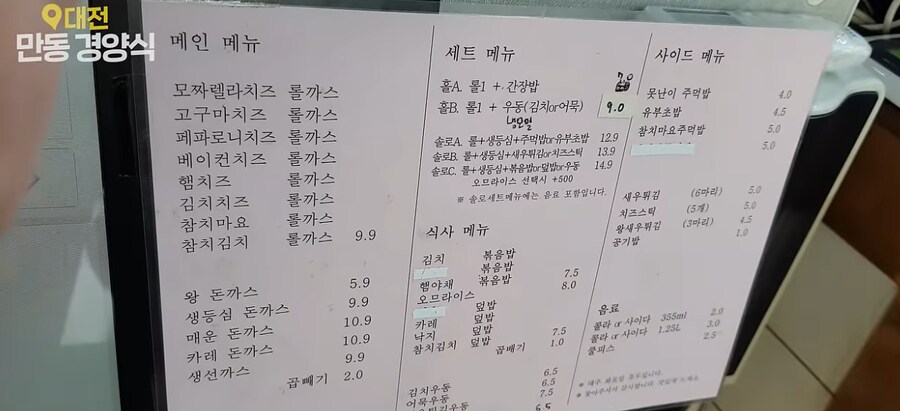 대전
만동 경양식
메인 메뉴
모짜렐라치즈 롤까스
고구마치즈 롤까스
페파로니치즈 롤까스
베이컨치즈 롤까스
햄치즈 롤까스
김치치즈 롤까스
참치마요 롤까스
참치김치 롤까스 9.9
왕 돈까스 5.9
생등심 돈까스 9.9
매운 돈까스 10.9
카레 돈까스 10.9
생선까스 9.9
곱빼기 2.0
세트 메뉴
홀A. 롤1 + 간장밥
홀B. 롤1 + 우동(김치or어묵) 9.0
냉모밀
솔로A. 롤+생등심+주먹밥or유부초밥 12.9
솔로B. 롤+생등심+새우튀김or치즈스틱 13.9
솔로C. 롤+생등심+볶음밥or덮밥or우동 14.9
오므라이스 선택시 +500
※ 솔로세트메뉴에는 음료 포함입니다.
식사 메뉴
김치 볶음밥
볶음밥
햄야채 볶음밥 7.5
오므라이스 8.0
덮밥
카레 덮밥
낙지 덮밥 7.5
참치김치 덮밥
곱빼기 1.0
김치우동 6.5
어묵우동 6.5
7.5
사이드 메뉴
못난이 주먹밥 4.0
유부초밥 4.5
참치마요주먹밥 5.0
5.0
새우튀김 (6마리) 5.0
치즈스틱 (5개) 5.0
왕새우튀김 (3마리) 4.5
공기밥 1.0
음료
콜라 or 사이다 355ml 2.0
콜라 or 사이다 1.25L 3.0
쿨피스 2.5
※ 매주 화요일 휴무입니다.